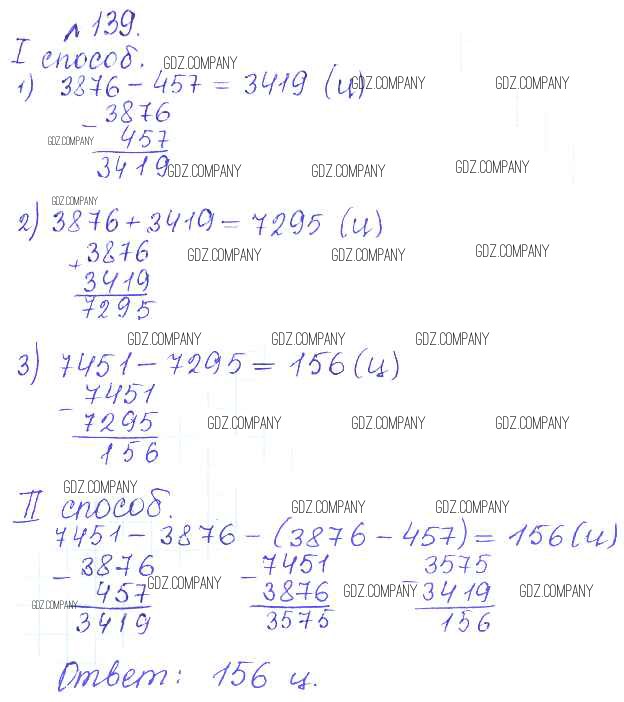 № 139.
I способ. GDZ.COMPANY
1) 3876 - 457 = 3419 (ц) GDZ.COMPANY GDZ.COMPANY
- 3876
GDZ.COMPANY 457
3419 GDZ.COMPANY GDZ.COMPANY GDZ.COMPANY
GDZ.COMPANY
2) 3876 + 3419 = 7295 (ц)
+ 3876 GDZ.COMPANY GDZ.COMPANY GDZ.COMPANY
3419
7295
GDZ.COMPANY GDZ.COMPANY GDZ.COMPANY
3) 7451 - 7295 = 156 (ц)
- 7451
7295 GDZ.COMPANY GDZ.COMPANY GDZ.COMPANY
156
GDZ.COMPANY
II способ. GDZ.COMPANY GDZ.COMPANY
7451 - 3876 - (3876 - 457) = 156 (ц)
- 3876 - 7451 - 3575
457 GDZ.COMPANY 3876 GDZ.COMPANY 3419 GDZ.COMPANY
GDZ.COMPANY 3419 3575 156
Ответ: 156 ц.